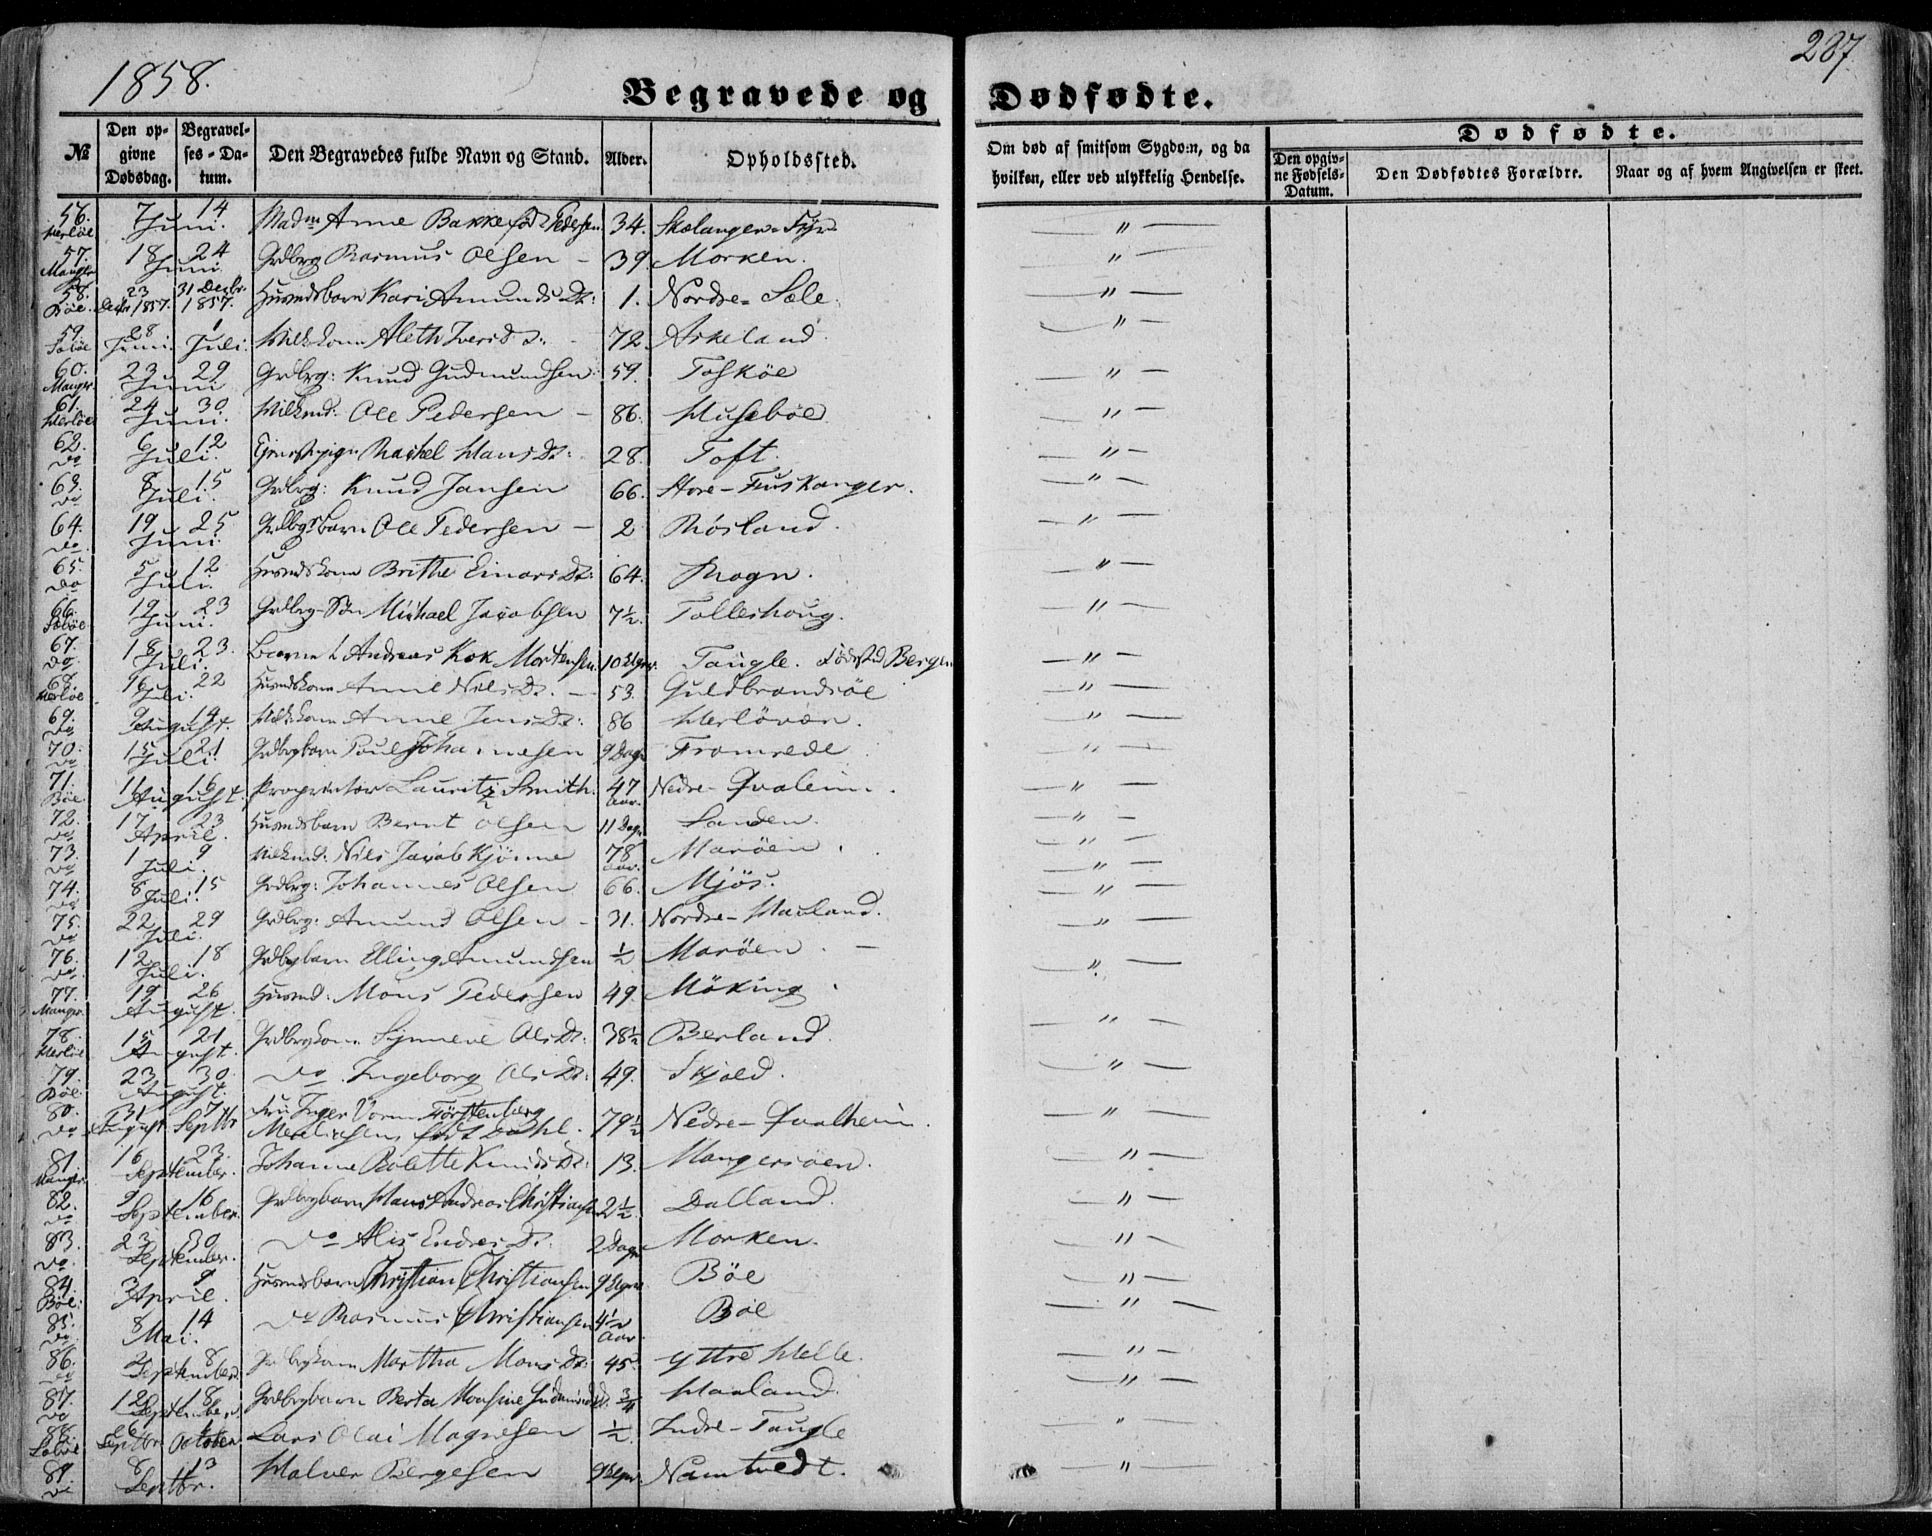 1858.
287.
Begravede og Dødfødte.
№ Den opgivne Dødsdag. Begravelses-Datum. Den Begravedes fulde Navn og Stand. Alder. Opholdssted. Om død af smitsom Sygdom, og da hvilken, eller ved ulykkelig Hendelse. Dødfødte. Den opgivne Fødsels-Datum. Den Dødfødtes Forældre. Naar og af hvem Angivelsen er skeet.
56. Herløe 7 Juni. 14 Madm Anne Bakke født Pedersen 34. Skælanger-Fyr "
57. Manger 18 Juni 24 Grdbrg Rasmus Olsen 39. Morken. "
58. Bøe. 23 Decbr 1857. 31 Decbr. 1857. Husmdsbarn Kari Amunds Dr: 1. Nordre-Sæle. "
59. Sæbøe 28 Juni. 1 Juli. Vilkskone Aleth Ivers Dr: 72. Askeland "
60. Manger. 23 Juni 29 Grdbrg: Knud Gudmundsen 59. Toskøe "
61. Herløe 24 Juni. 30. Vilkmd: Ole Pedersen 86. Husebøe "
62. do 6 Juli. 12 Rachel Hans Dr: 28. Toft. "
63. do 8 Juli. 15 Grdbrg: Knud Jansen 66. Store-Fuskanger. "
64. do 19 Juni. 25 Grdbgsbarn Ole Pedersen 2 Røsland. "
65. do 5 Juli. 12 Husmdskone Brithe Einars Dr: 64. Rogn. "
66. Sæbøe 19 Juni. 23 Grdbrg-Søn Michael Jacobsen 7½ Tolleshoug. "
67. do 18 Juli. 23. Barnet Andreas Kok Mortensen. 10 Tangle. Fødested Bergen "
68. Herløe 16 Juli. 22 Husmdskone Anne Nils Dr. 53. Guldbrandsøe "
69. do 9 August. 14 Vilkskone Anne Jens Dr: 86 Herløvær. "
70. do 15 Juli. 21 Grdbrgbarn Poul Johannesen 9 Dage Fromrede "
71. Bøe. 11 August. 16 Proprietær Lauritz Smith. 47 Aar. Nedre-Qvalem. "
72. do 17 April. 23 Husmdsbarn Bernt Olsen 11 Dage Sanden. "
73. do 1 Juli. 9 Vilkmd: Nils Jacob Kjønne 78 Aar. Marøen. "
74. do 8 Juli. 15 Grdbrg: Johannes Olsen 66. Mjøs. "
75. do 22 Juli. 29 Grdbrg: Amund Olsen 31. Nordre-Havland. "
76. do 12 Juli. 18 Grdbrgbarn Elling Amundsen ½ Marøen. "
77. Manger. 19 August. 26 Husmd: Mons Pedersen 49. Møking "
78. Herløe 15 August. 21 Grdbrgkone Synneve Ols Dr: 38½ Berland. "
79. Bøe. 23 August. 30 do Ingeborg Ols Dr: 49. Skjold. "
80. do 31 August 7 Septbr Fru Inger Vorm Førstenberg født Dahl. 79½ Nedre-Qvalheim. "
81. Manger. 16 September. 23. Johanne Bolette Knuds Dr: 13. Mangersøen. "
82. do 9 September. 16 Grdbrgbarn Hans Andreas Christiansen 2½ Dalland. "
83. do 23 September. 30 do Alis Endres Dr. 2 Dage Morken. "
84. Bøe. 3 April. 9 Husmdsbarn Christian Christiansen 9 Bøe "
85. do 8 Mai. 14 do Rasmus Christiansen 4½ Aar. Bøe "
86. do 2 September 8 Grdbrgkone Martha Mons Dr: 45. Yttre Helle. "
87. do 12 September. 18 Grdbrgbarn Berta Monsine ¾ Havland. "
88. Sæbøe 26 Septbr October. Lars Olai Magnesen ½ Indre-Tangle "
89. do 8 Septbr. 13 Halver Børgesen 9 Namtvedt. "